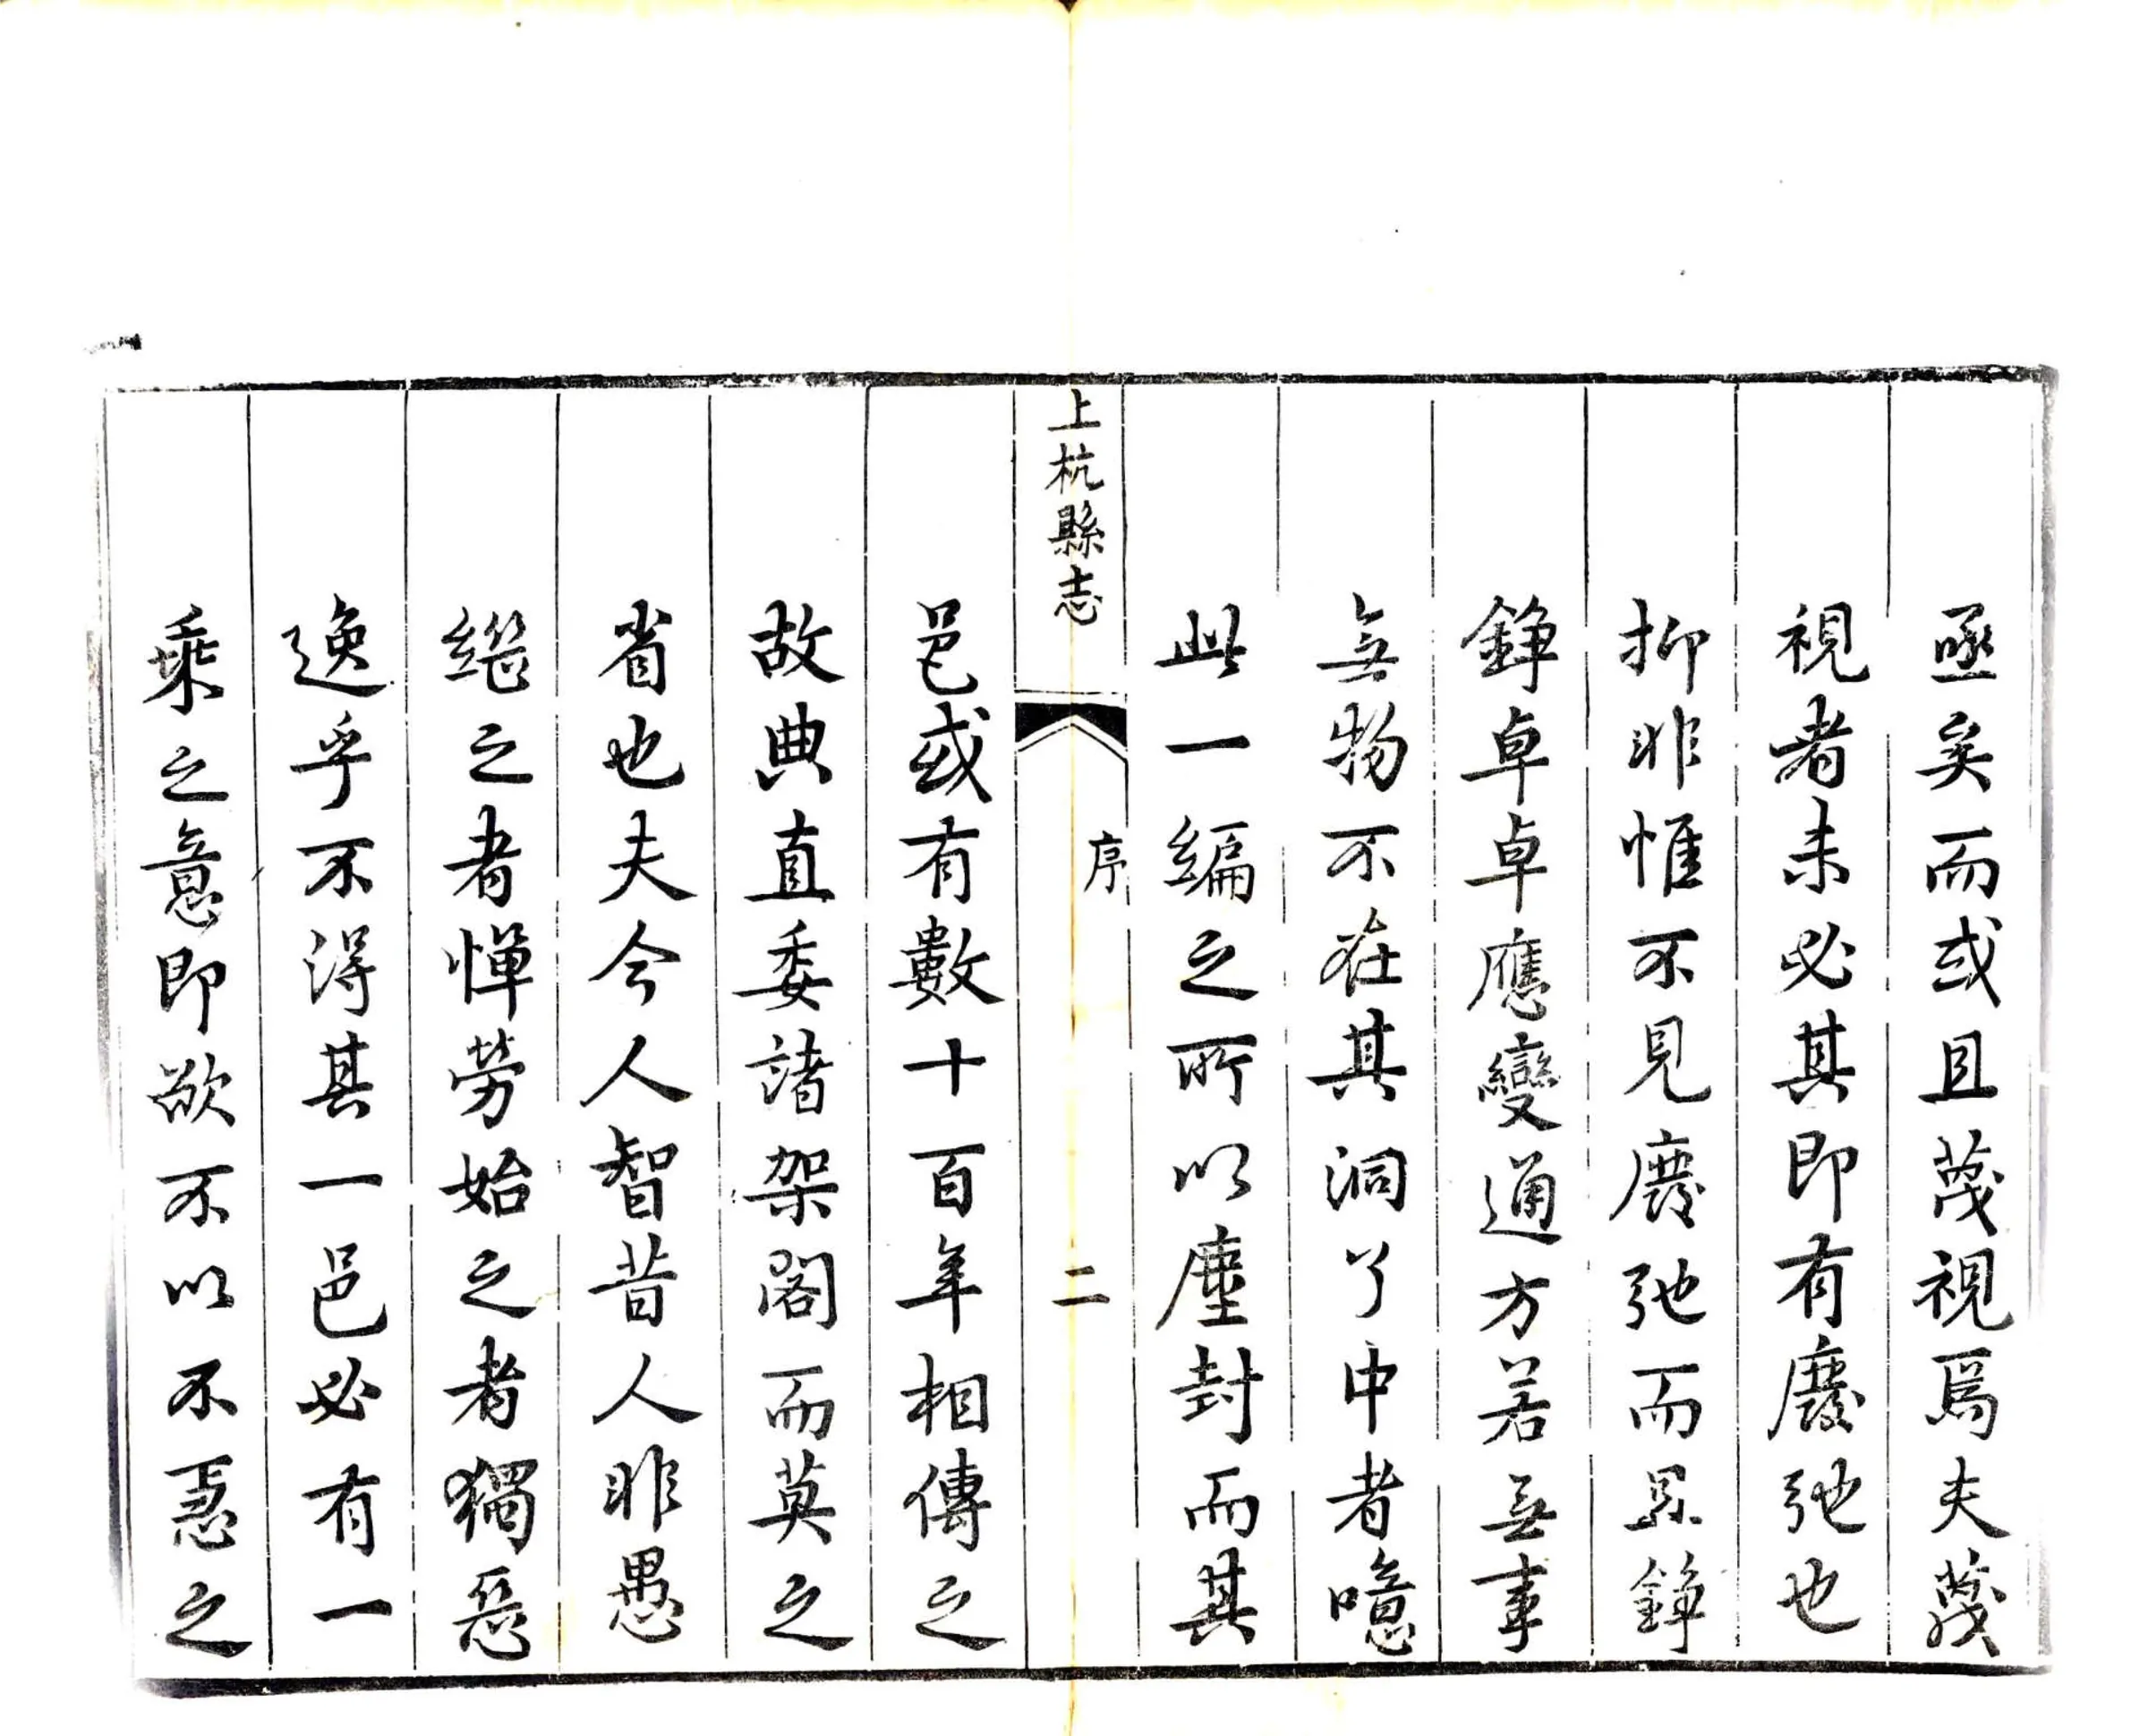 亟矣而或且蔑視焉夫蔑
視者未必其即有廢弛也
抑非惟不見廢弛而果錚
錚卓卓應變通方若無事
無物不在其洞了中者噫
此一編之所以塵封而其
上杭縣志
序
二
邑或有數十百年相傳之
故典直委諸架閣而莫之
省也夫今人智昔人非愚
繼之者憚勞始之者獨惡
逸乎不得其一邑必有一
乘之意即欲不以不急之